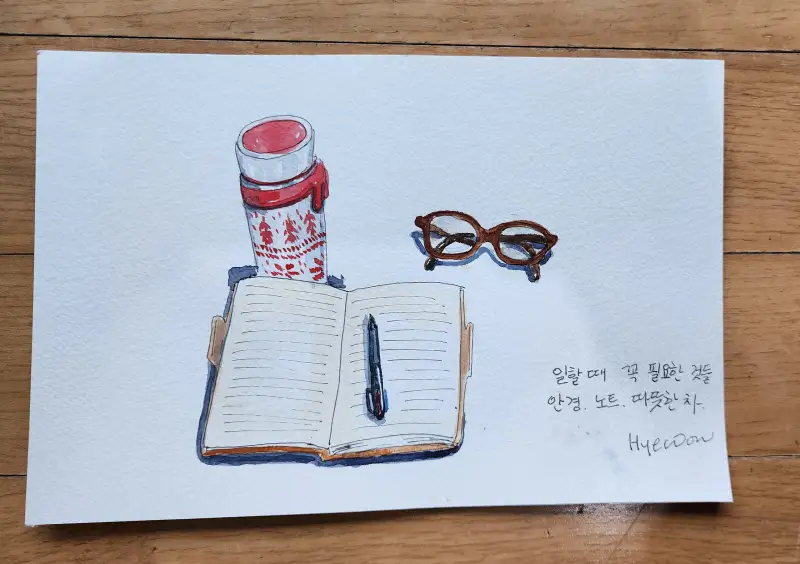 일할 때 꼭 필요한 것들
안경. 노트. 따뜻한 차.
Hyewon